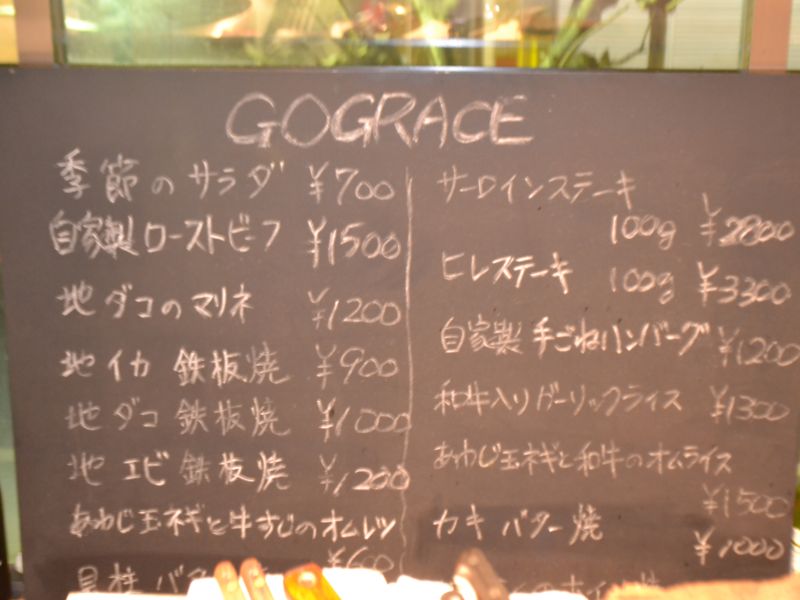 GOGRACE
季節のサラダ ¥700
自家製ローストビーフ ¥1500
地ダコのマリネ ¥1200
地イカ 鉄板焼 ¥900
地ダコ 鉄板焼 ¥1000
地エビ 鉄板焼 ¥1200
あわじ玉ネギと牛すじのオムレツ
¥600
貝柱 バ
サーロインステーキ
100g ¥2800
ヒレステーキ 100g ¥3300
自家製 手ごねハンバーグ ¥1200
和牛入りガーリックライス ¥1300
あわじ玉ネギと和牛のオムライス
¥1500
カキ バター焼
¥1000
のホイル焼